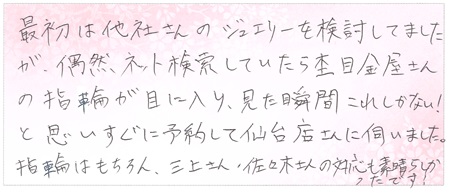 最初は他社さんのジュエリーを検討してました
が、偶然、ネット検索していたら杢目金屋さん
の指輪が目に入り、見た瞬間これしかない!
と思いすぐに予約して仙台店さんに伺いました。
指輪はもちろん、三上さん・佐々木さんの対応も素晴らしか
ったです!